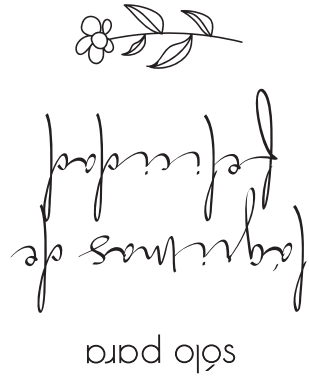 sólo para
lágrimas de
felicidad